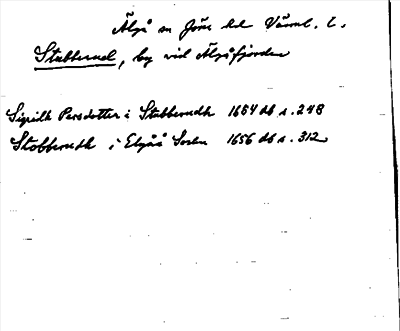 Älgå sn Jöse hd Värml. l.
Stubberud, by vid Älgåfjorden
Sigridh Persdotter i Stubberudh 1654 db s. 248
Stobberudh i Elgåå Sochn 1656 db s. 312